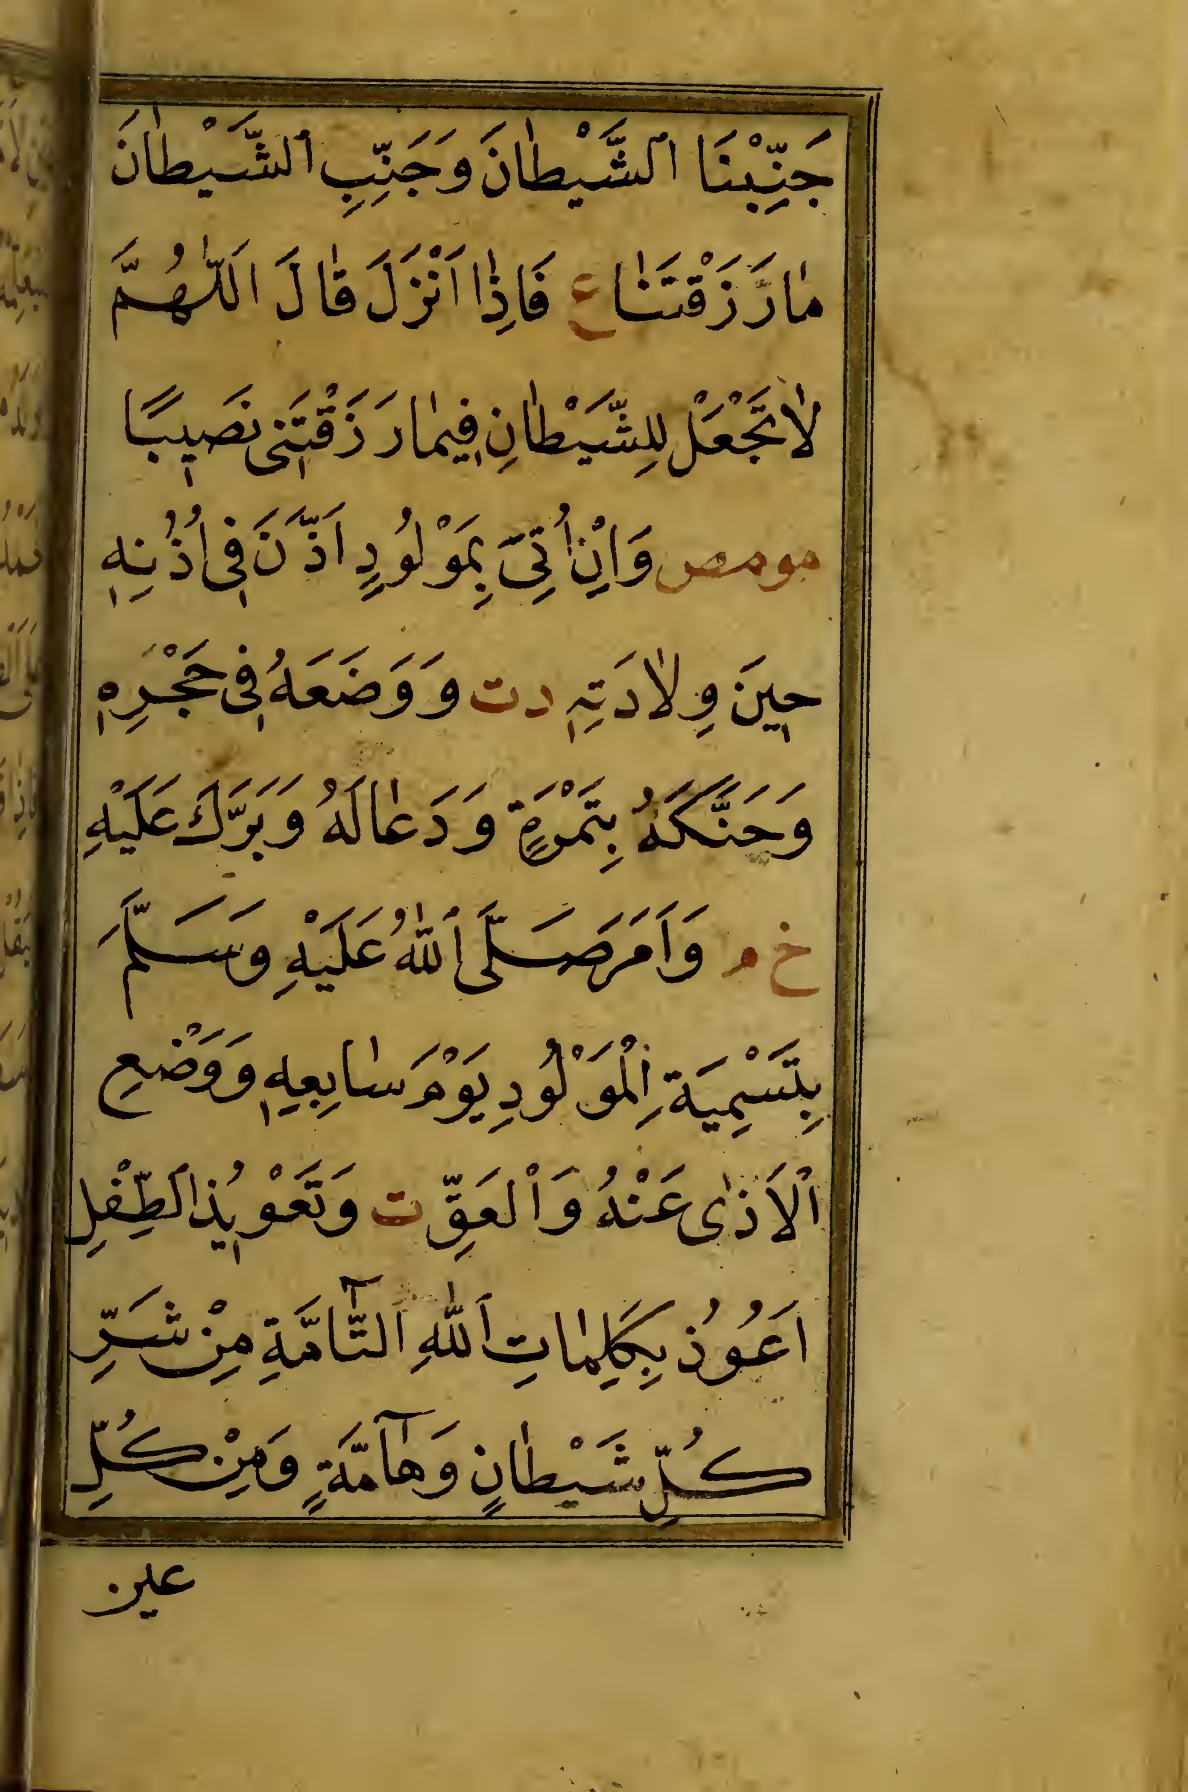 جَنِّبْنَا الشَّيْطٰانَ وَجَنِّبِ الشَّيْطٰانَ
مٰا رَزَقْتَنٰا ع فَاِذٰا اَنْزَلَ قٰالَ اَللّٰهُمَّ
لٰا تَجْعَلْ لِلشَّيْطٰانِ فِيمٰا رَزَقْتَنِى نَصِيبًا
مو مص وَاِنْ اُتِىَ بِمَوْلُودٍ اَذَّنَ فِى اُذُنِهِ
حِينَ وِلٰادَتِهِ د ت وَوَضَعَهُ فِى حَجْرِهِ
وَحَنَّكَهُ بِتَمْرَةٍ وَدَعٰا لَهُ وَبَرَّكَ عَلَيْهِ
خ م وَاَمَرَ صَلَّى اللّٰهُ عَلَيْهِ وَسَلَّمَ
بِتَسْمِيَةِ الْمَوْلُودِ يَوْمَ سٰابِعِهِ وَوَضْعِ
الْاَذٰى عَنْهُ وَالْعَقِّ ت وَتَعْوِيذُ الطِّفْلِ
اَعُوذُ بِكَلِمٰاتِ اللّٰهِ التّٰآمَّةِ مِنْ شَرِّ
كُلِّ شَيْطٰانٍ وَهٰآمَّةٍ وَمِنْ كُلِّ
عين